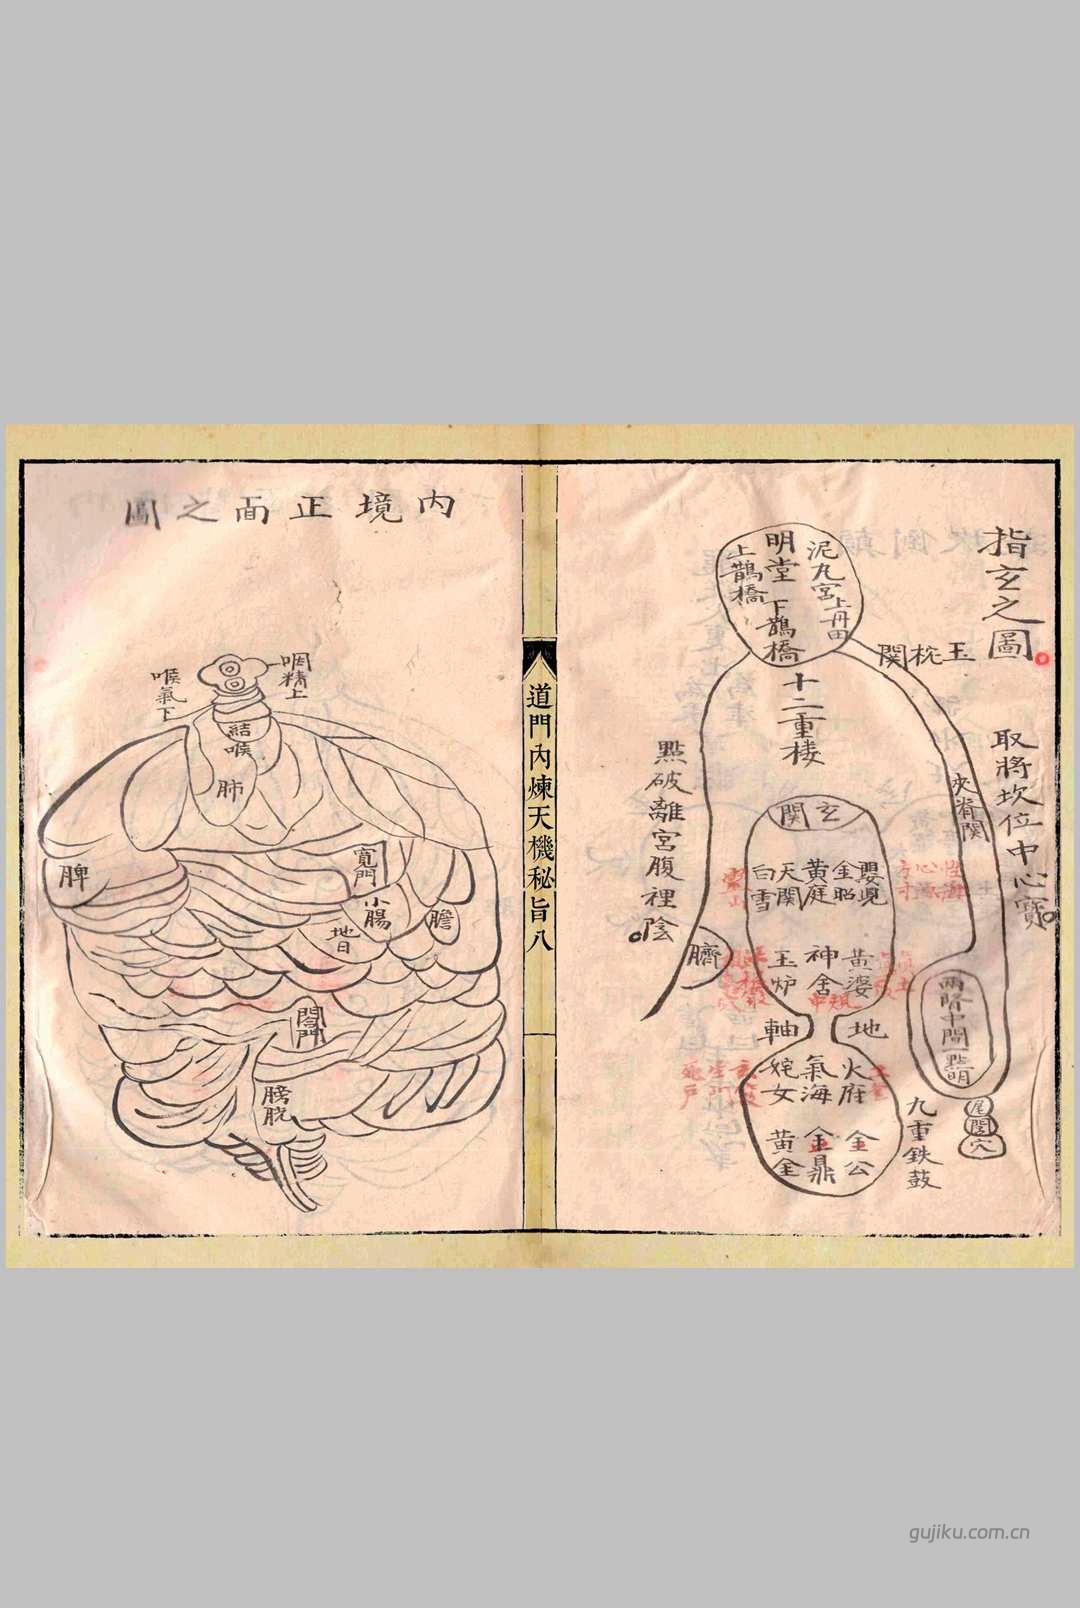 指玄之圖
取將坎位中心寶
點破離宮腹裡陰
泥丸宮
上丹田
明堂
下鵲橋
上鵲橋
玉枕關
十二重楼
夾脊關
玄關
嬰兒
金
黃庭
天關
白雪
黃婆
神舍
玉炉
臍
地軸
兩腎中間一點明
火府
氣海
姹女
金公
金鼎
黃金
尾閭穴
九重鉄鼓
道門內煉天機秘旨八
內境正面之圖
咽精上
喉氣下
結喉
肺
脾
小腸
膽
膀胱
gujiku.com.cn